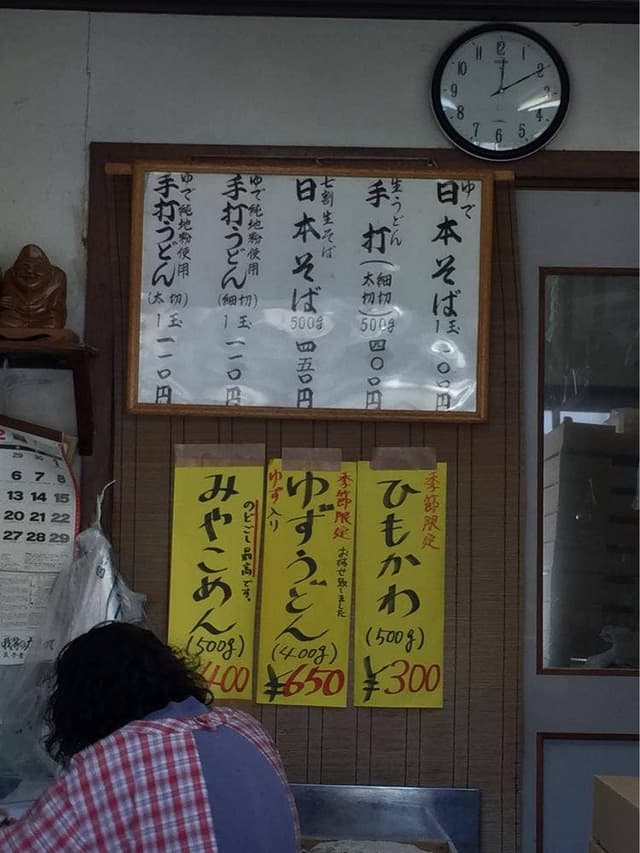 12
1
2
3
4
5
6
7
8
9
10
11
ゆで
日本そば
1玉
一〇〇円
生うどん
手打(細切 太切)
500g
四〇〇円
七割生そば
日本そば
500g
四五〇円
ゆで純地粉使用
手打うどん
(細切)
1玉
一一〇円
ゆで純地粉使用
手打うどん
(太切)
1玉
一一〇円
季節限定
ひもかわ
(500g)
¥300
季節限定
お待せ致しました
ゆずうどん
ゆず入り
(400g)
¥650
のどごし最高です。
みやこめん
(500g)
400
2
29 30 1
6 7 8
13 14 15
20 21 22
27 28 29